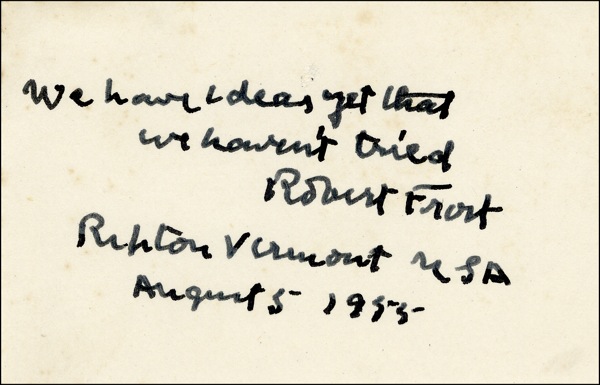 We have ideas yet that
we haven't tried
Robert Frost
Ripton Vermont USA
August 5 1955